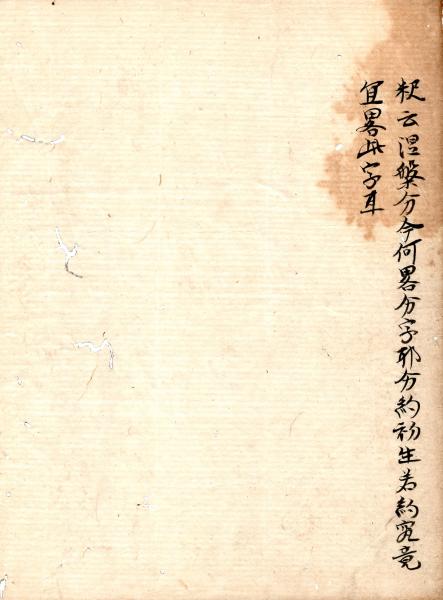 釈云涅槃分今何畧分字耶分約初生若約究竟
宜畧此字耳